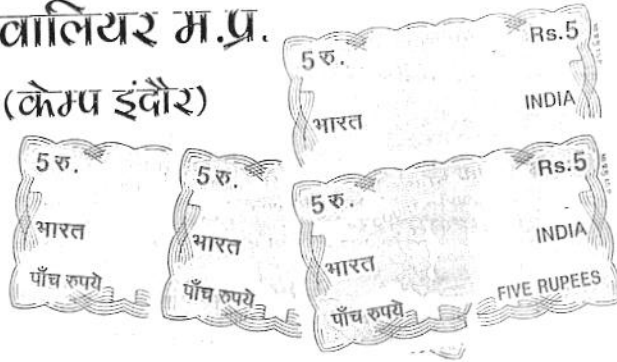 वालियर म.प्र.
(केम्प इंदौर)
5 रु. Rs.5
भारत INDIA
5 रु.
भारत
पाँच रुपये
5 रु.
भारत
पाँच रुपये
5 रु. Rs.5
भारत INDIA
पाँच रुपये FIVE RUPEES